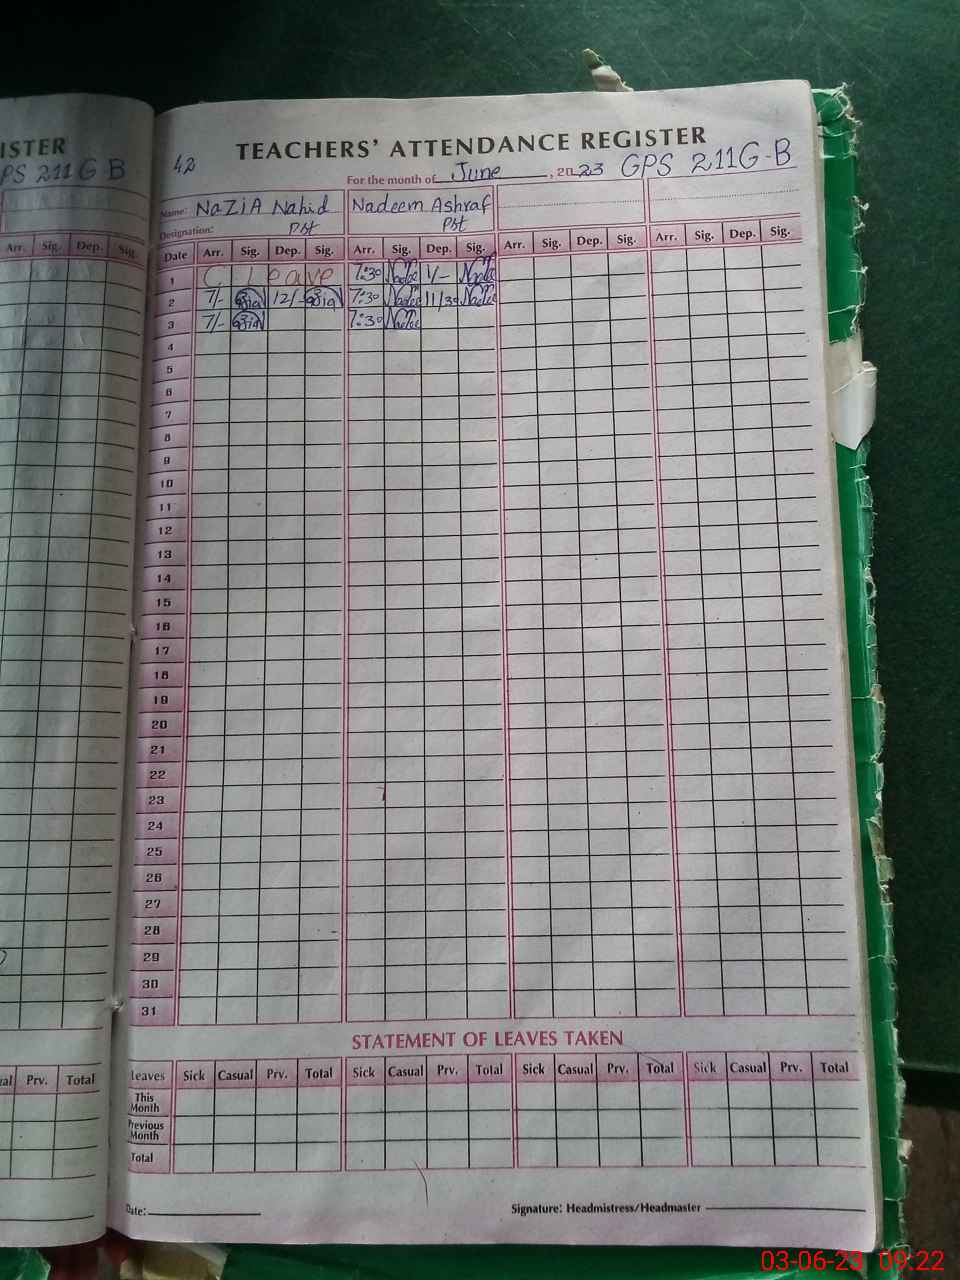 ISTER
PS 211 G B
Arr. Sig. Dep. Sig.
al Prv. Total
42
TEACHERS' ATTENDANCE REGISTER
For the month of June, 2023 GPS 211G-B
Name: NaZiA Nahid Nadeem Ashraf
Designation: Pst Pst
Date Arr. Sig. Dep. Sig. Arr. Sig. Dep. Sig. Arr. Sig. Dep. Sig. Arr. Sig. Dep. Sig.
1 C Leave 7:30 1/-
2 7/- 12/- 7:30 11/30
3 7/- 7:30
4
5
6
7
8
9
10
11
12
13
14
15
16
17
18
19
20
21
22
23
24
25
26
27
28
29
30
31
STATEMENT OF LEAVES TAKEN
Leaves Sick Casual Prv. Total Sick Casual Prv. Total Sick Casual Prv. Total Sick Casual Prv. Total
This
Month
Previous
Month
Total
Date:
Signature: Headmistress/Headmaster
03-06-23 09:22